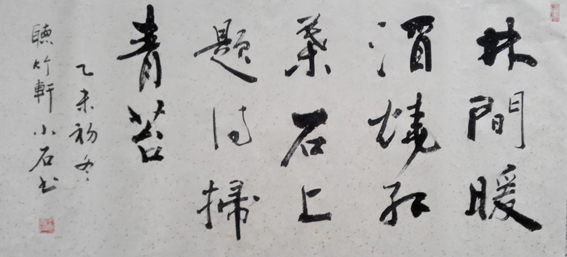 林間暖
酒燒紅
葉石上
題詩掃
青苔
乙未初冬
聴竹軒小石书